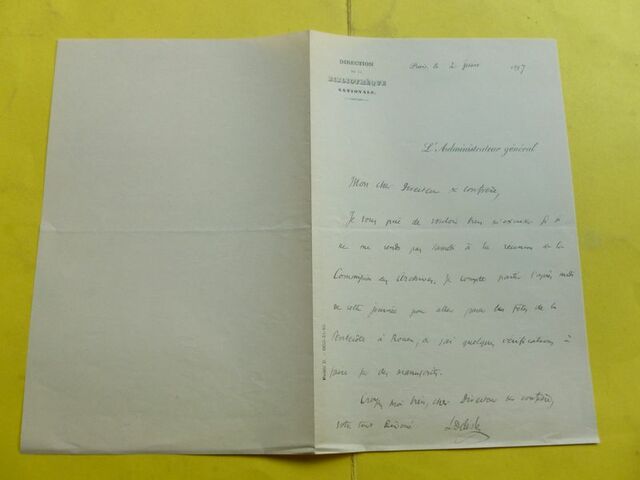 DIRECTION
DE LA
BIBLIOTHÈQUE
NATIONALE.
Paris, le 2 juin 1897
L'Administrateur général
Mon cher Directeur & confrère,
Je vous prie de vouloir bien m'excuser si je
ne me rends pas samedi à la réunion de la
Commission des Archives. Je compte partir l'après midi
de cette journée pour aller pour les fêtes de la
Pentecôte à Rouen, où j'ai quelques vérifications à
faire sur des manuscrits.
Croyez moi bien, cher Directeur et confrère,
votre tout dévoué
L Delisle